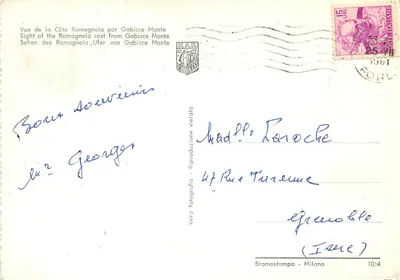 Vue de la Côte Romagnola par Gabicce Monte
Sight of the Romagnola cost from Gabicce Monte
Sehen des Romagnola „Ufer von Gabicce Monte
Bons souvenirs
Mr Georges
Vera Fotografia - Riproduzione vietata
15
ITALIANE
1961
FORLI
Madlle Laroche
47 Rue Turenne
Grenoble
(Isere)
Bromostampa - Milano
1054